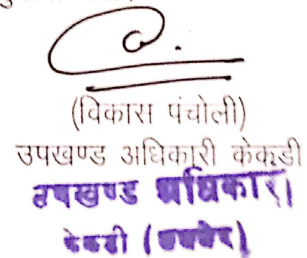 (विकास पंचोली)
उपखण्ड अधिकारी केकडी
उपखण्ड अधिकारी
केकडी (अजमेर)